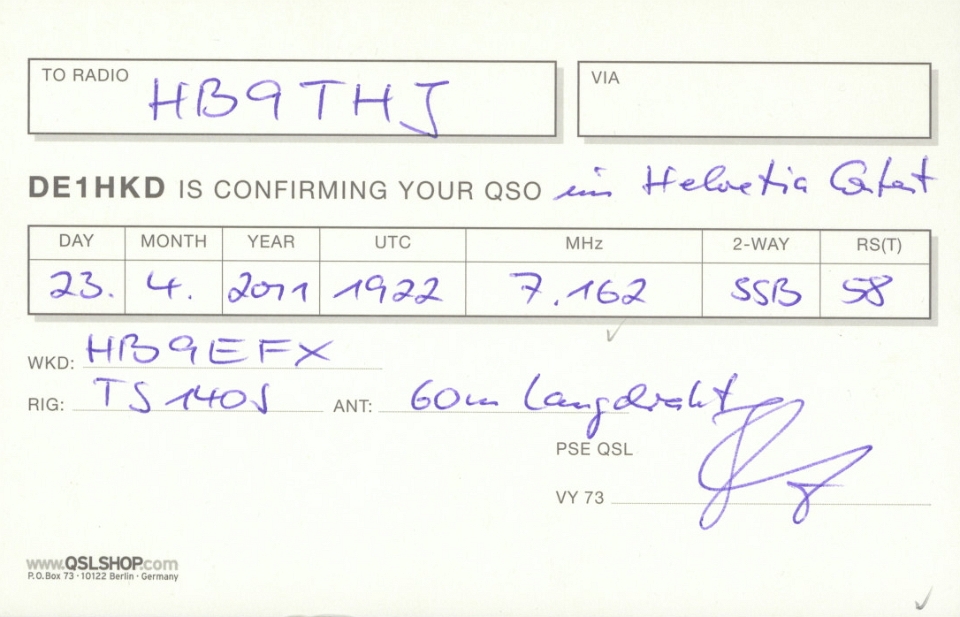 TO RADIO HB9THJ VIA
DE1HKD IS CONFIRMING YOUR QSO im Helvetia Contest
DAY MONTH YEAR UTC MHz 2-WAY RS(T)
23. 4. 2011 1922 7.162 SSB 58
WKD: HB9EFX
RIG: TS 140S ANT: 60m Langdraht
PSE QSL
VY 73
www.QSLSHOP.com
P.O.Box 73 · 10122 Berlin · Germany